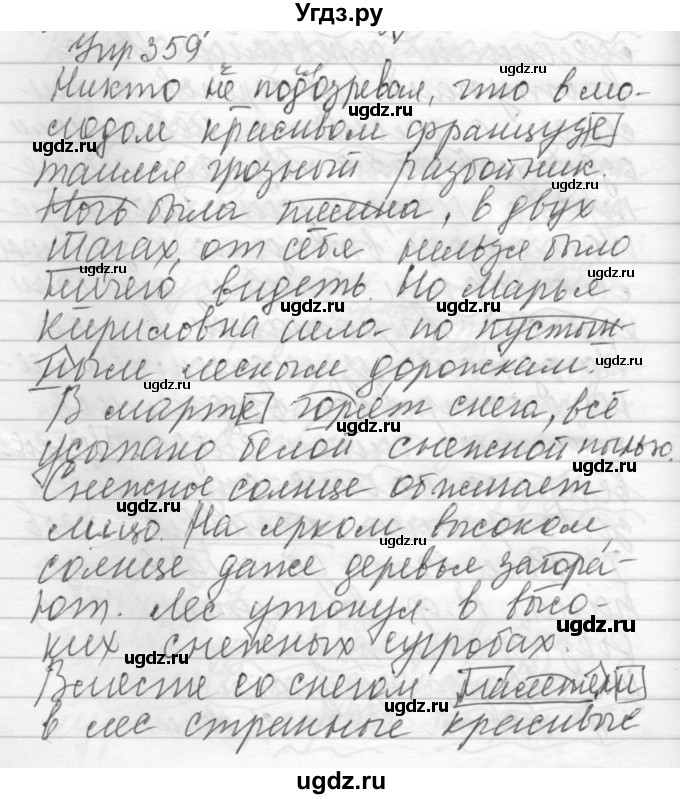 Угдз.ру
Упр 359
Никто не подозревал, что в мо-
лодом красивом французе
таился грозный разбойник.
Ночь была темна, в двух
шагах от себя нельзя было
ничего видеть. Но Марья
Кириловна шла по пустын-
ным лесным дорожкам.
В марте горят снега, всё
усыпано белой снежной пылью.
Снежное солнце обжигает
лицо. На ярком высоком
солнце даже деревья загора-
ют. Лес утонул в высо-
ких снежных сугробах.
Вместе со снегом налетели
в лес странные красивые
ugdz.ru